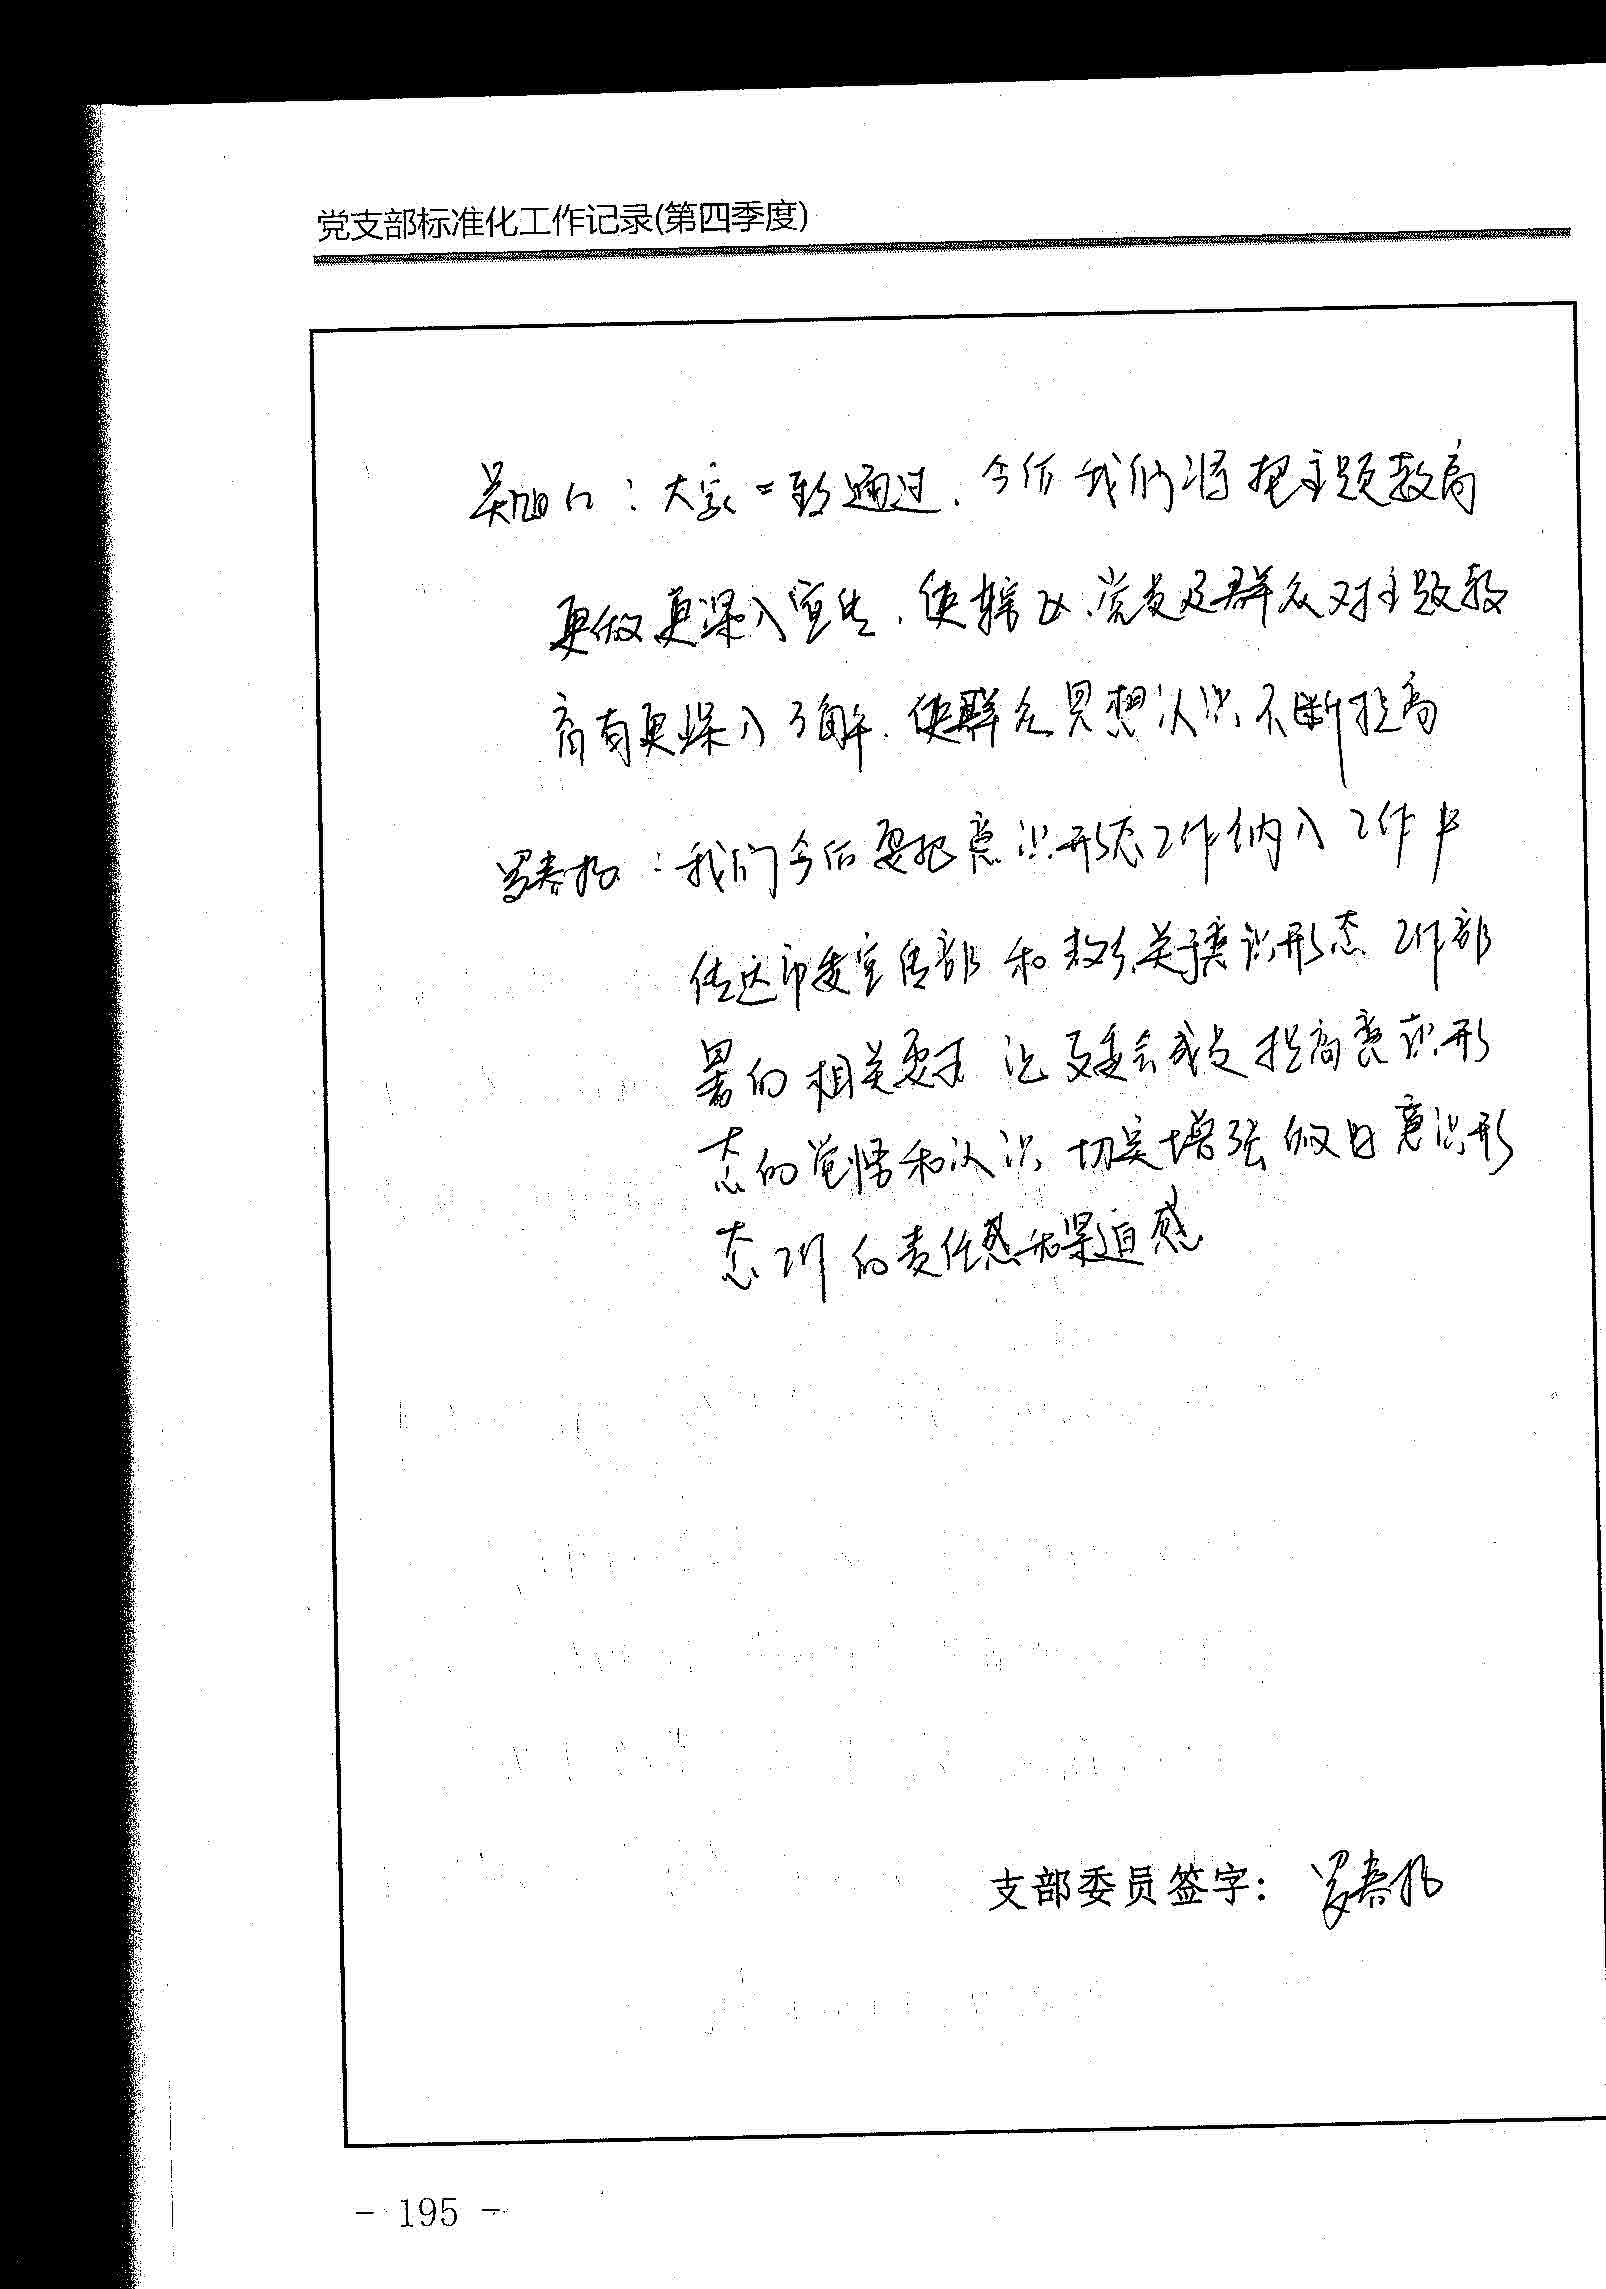 党支部标准化工作记录(第四季度)
：大家一致通过，今后我们将把主题教育
更做更深入宣传，使辖区、党员及群众对主题教
育有更深入了解，使群众思想认识不断提高
罗春扬：我们今后要把意识形态工作纳入工作中
传达市委宣传部和关于意识形态工作部
署的相关要求 让支委会成员提高意识形
态的觉悟和认识 切实增强做好意识形
态工作的责任感和紧迫感
支部委员签字：罗春扬
- 195 -